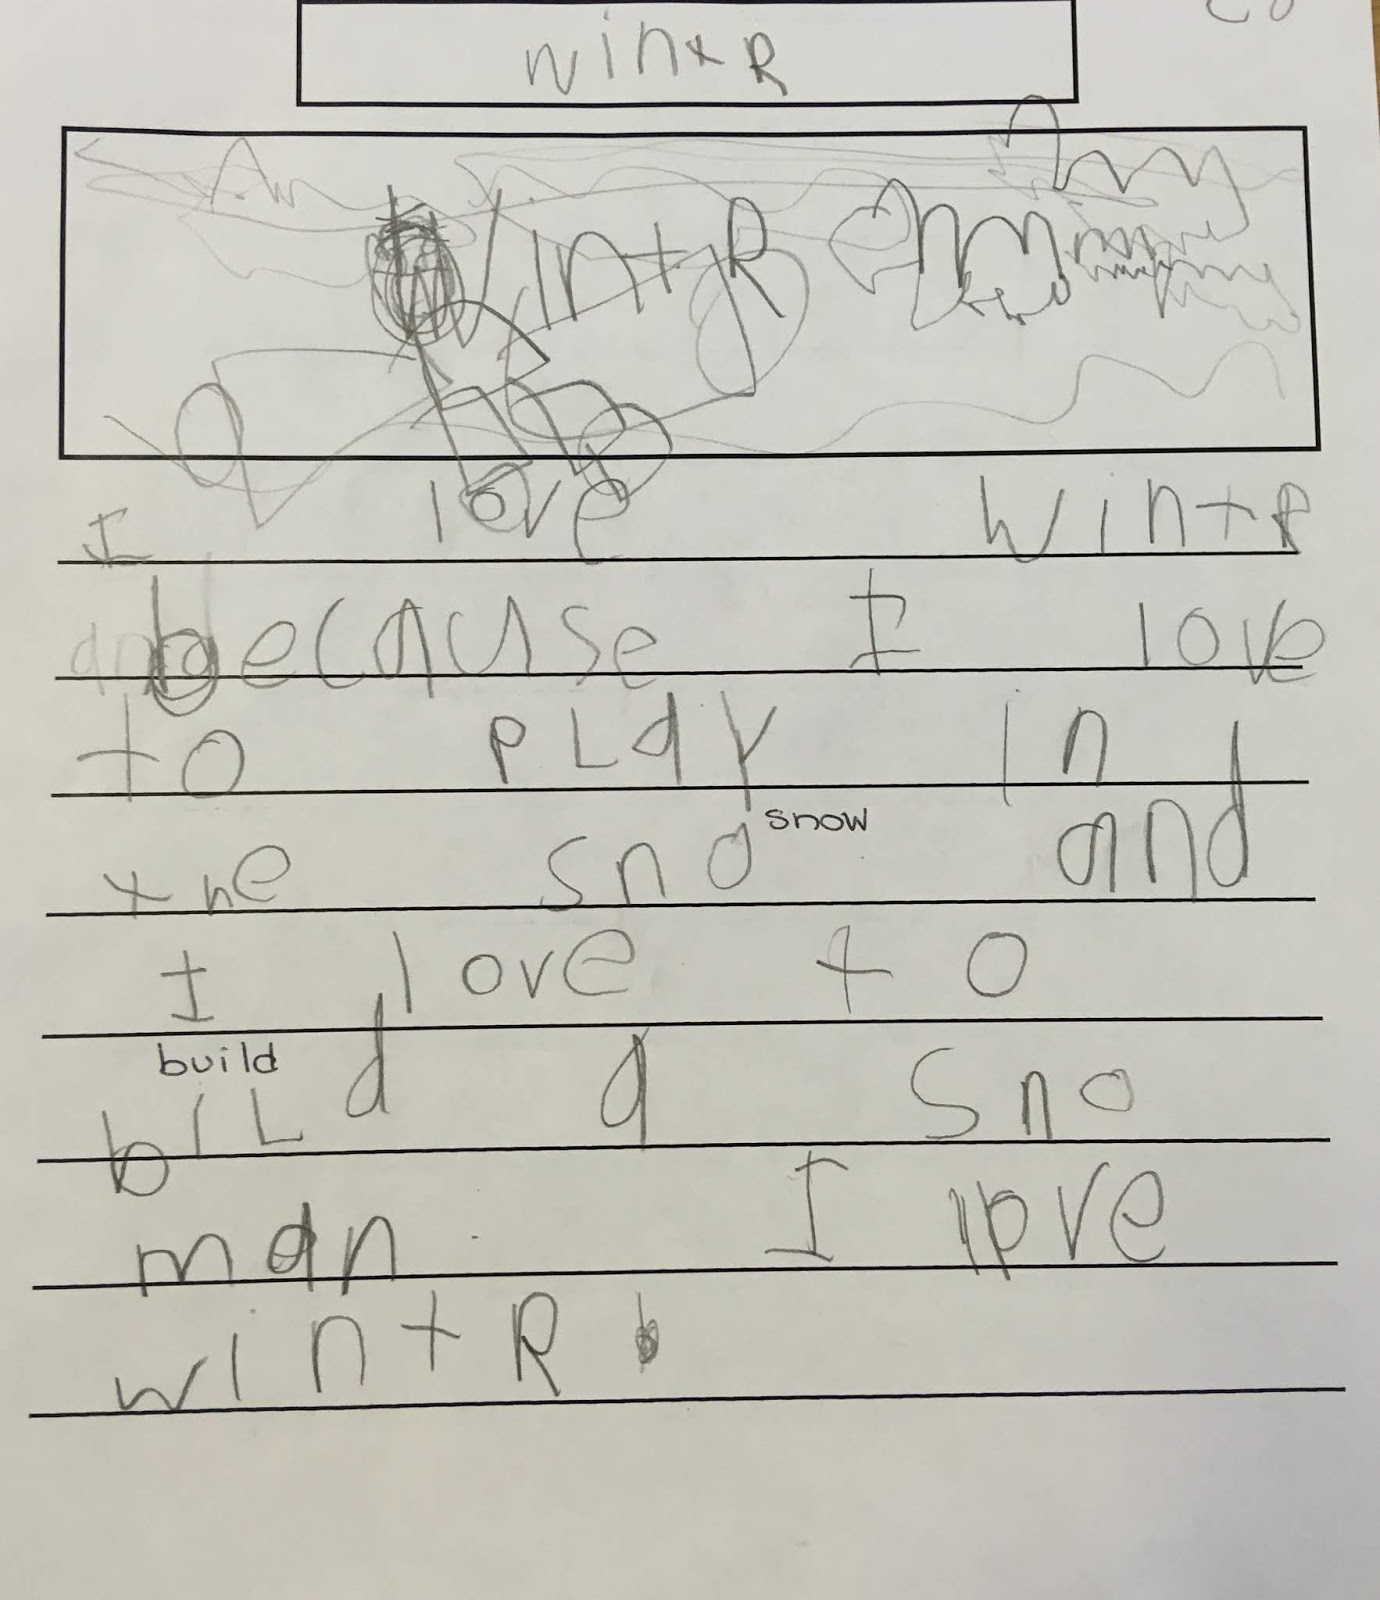 wintR
WintR
I love WintR
because I love
to pLay in
snow
the sno and
I love to
build
biLd a sno
man. I love
wintR